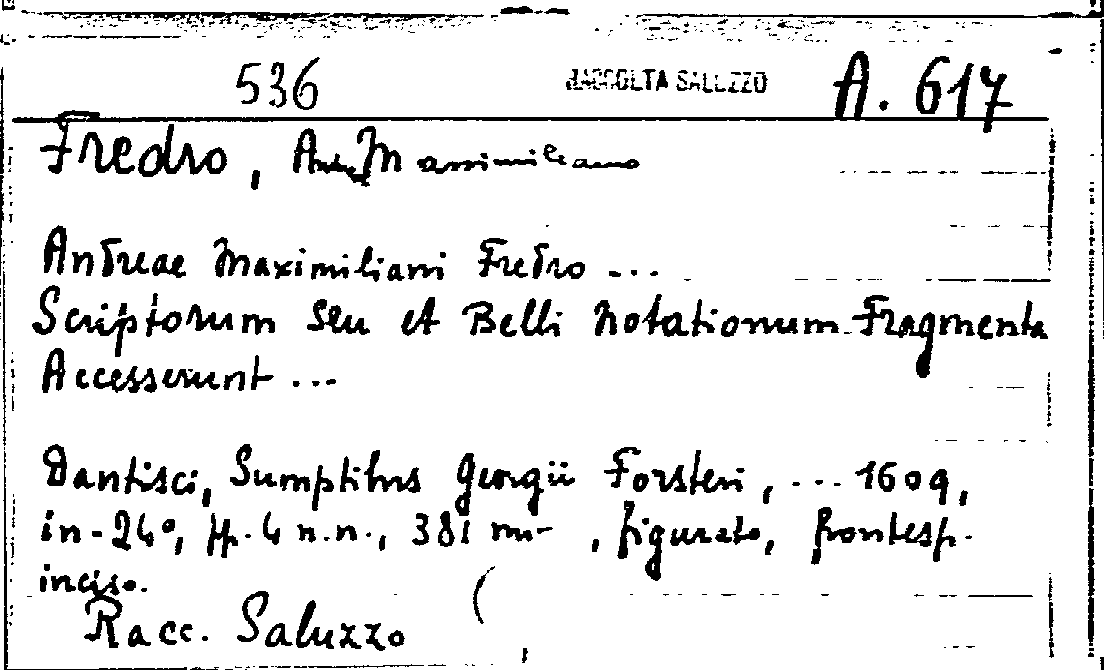 536 RACCOLTA SALUZZO A. 617
Fredro, Andr. Massimiliano
Andreae Maximiliani Fredro ...
Scriptorum seu et Belli Notationum Fragmenta
Accesserunt ...
Dantisci, Sumptibus Georgii Forsteri, ... 1609,
in-24°, pp. 4 n.n., 381 nr , figurato, frontesp.
inciso.
Racc. Saluzzo